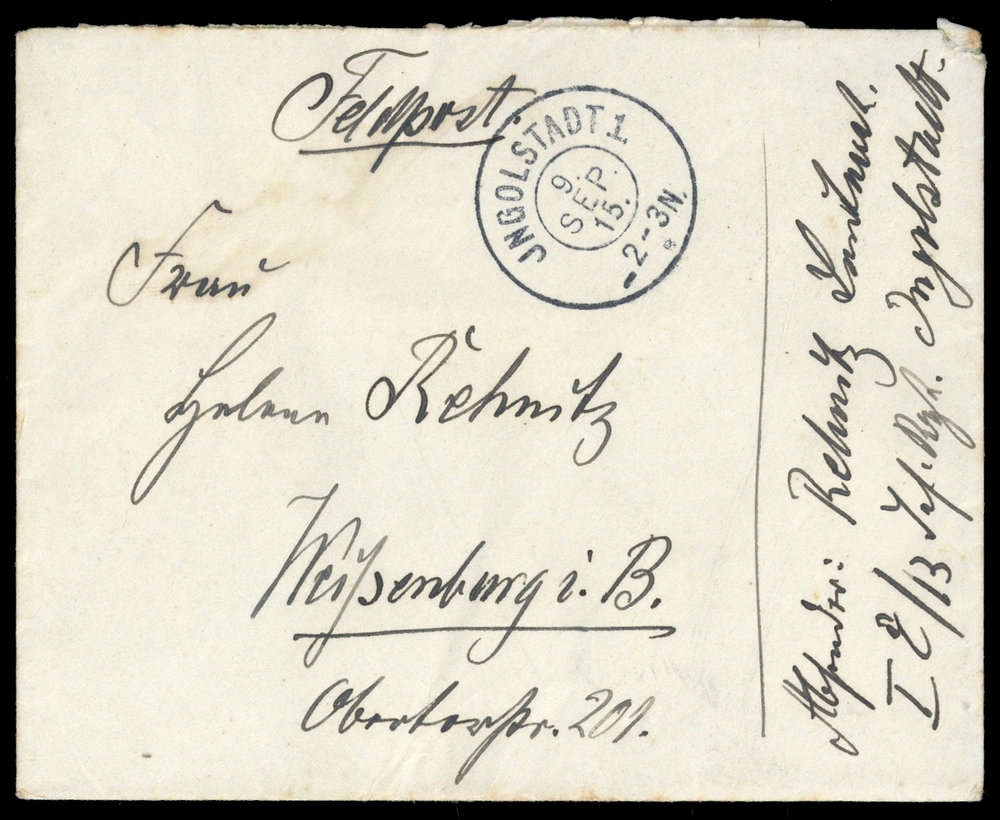 Feldpost.
JNGOLSTADT 1
9.
SEP.
15.
2-3N.
Frau
Helene Rehnitz
Weißenburg i. B.
Obertorstr. 201.
Absender: Rehnitz Landwehr.
I E/13 Inf. Rgt. Ingolstadt.